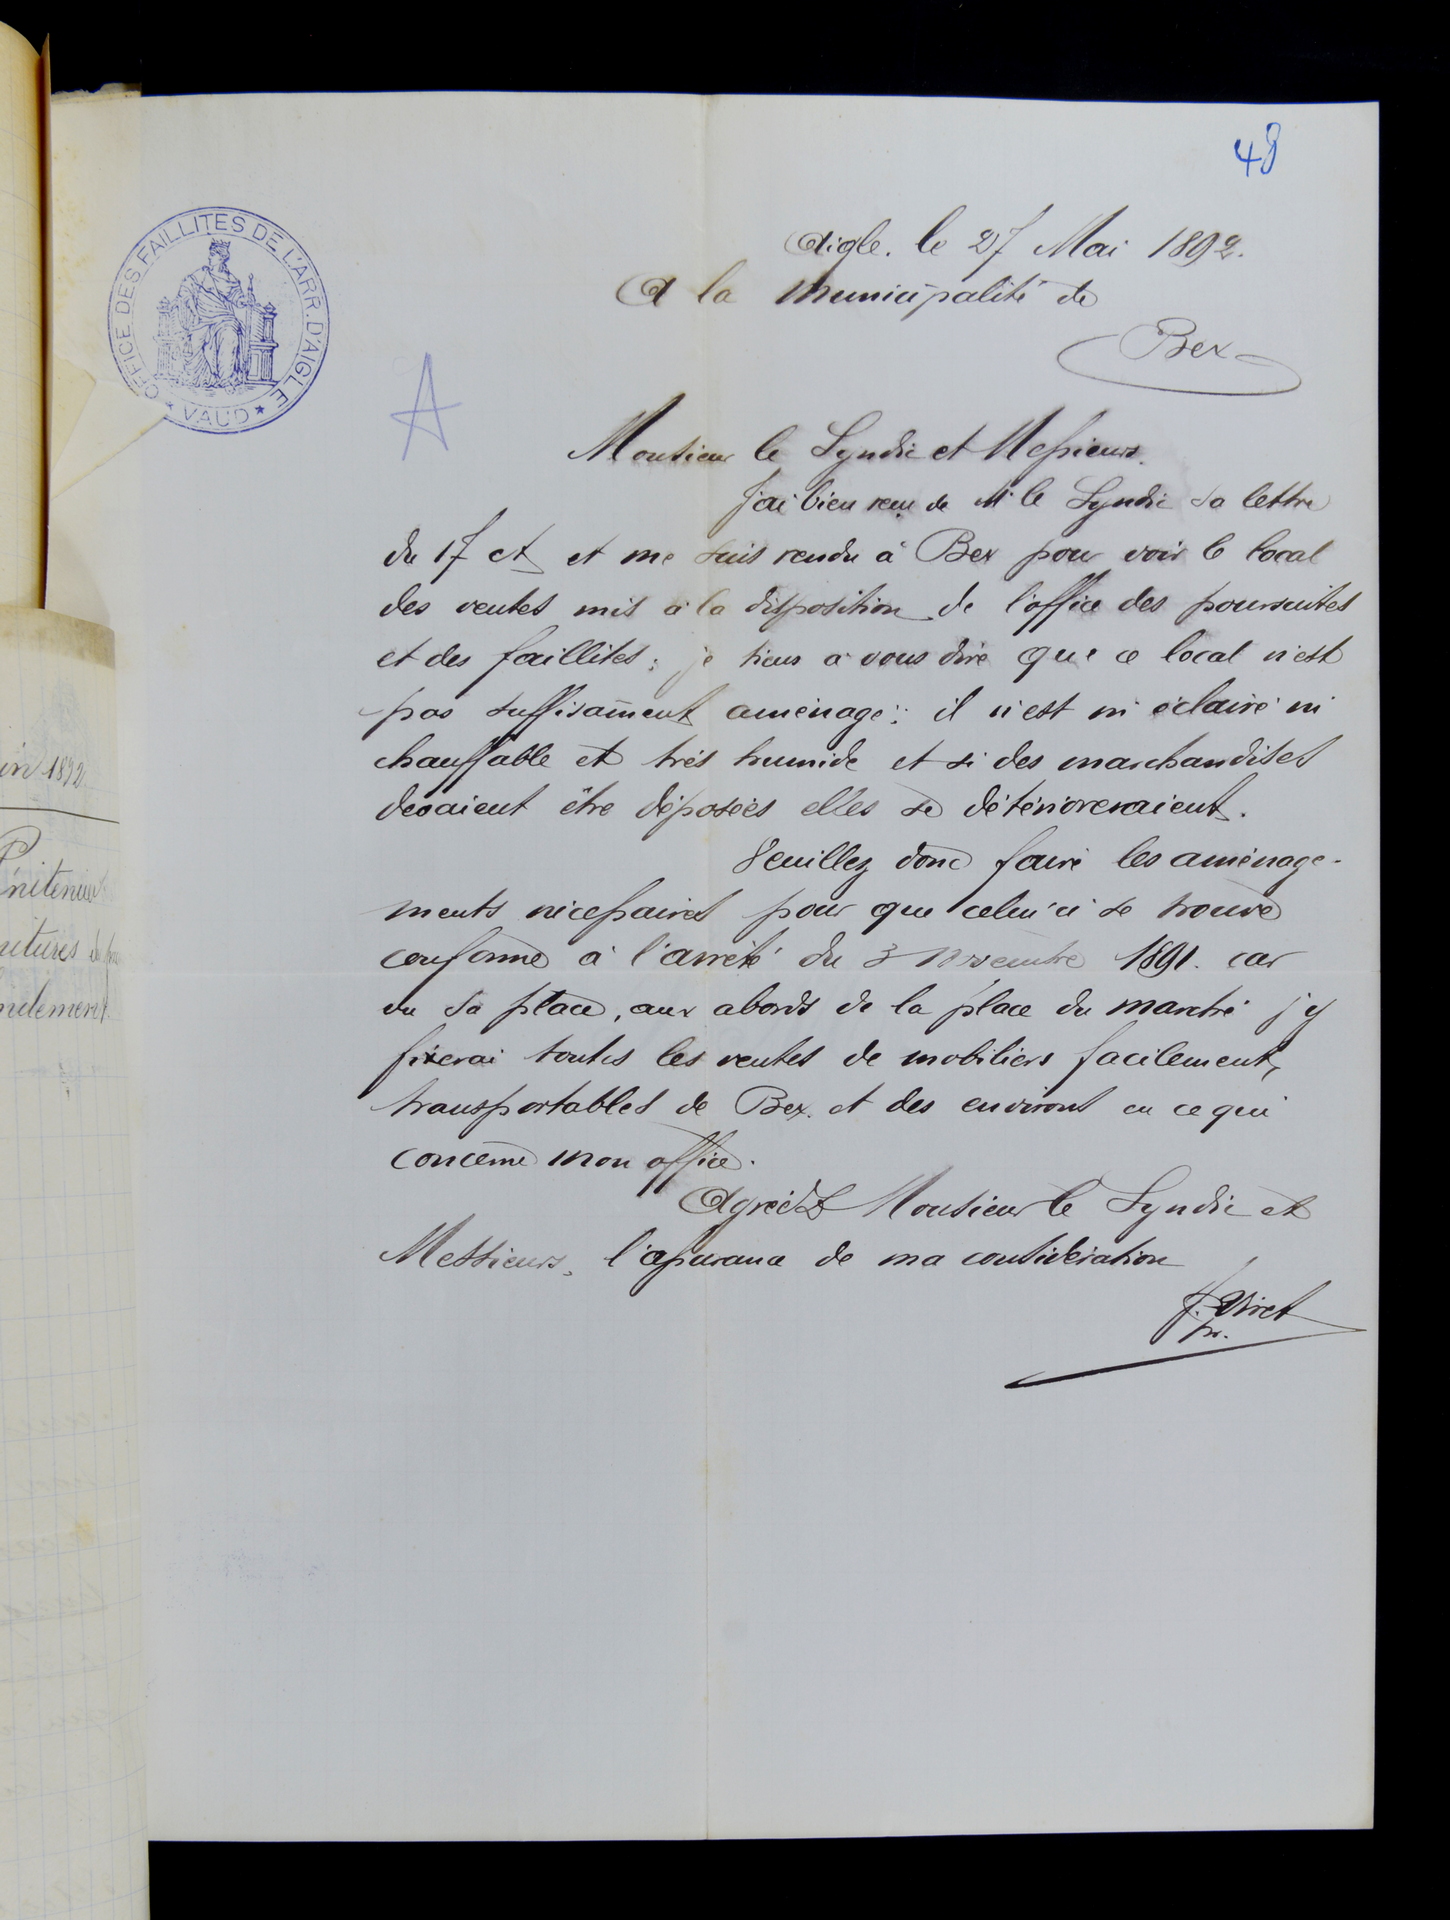 48
OFFICE DES FAILLITES DE L'ARR. D'AIGLE
* VAUD *
Aigle. le 27 Mai 1892.
A la Municipalité de
Bex
A
Monsieur le Syndic et Messieurs.
J'ai bien reçu de Mr le Syndic sa lettre
du 17 ct et me suis rendu à Bex pour voir le local
des ventes mis à la disposition de l'office des poursuites
et des faillites; je tiens à vous dire que ce local n'est
pas suffisam̄ent aménagé: il n'est ni éclairé ni
chauffable et très humide et si des marchandises
devaient être déposées elles se détérioreraient.
Veuillez donc faire les aménage-
ments nécessaires pour que celui ci se trouve
conforme à l'arrêté du 3 Novembre 1891. car
vu sa place, aux abords de la place du marché j'y
fixerai toutes les ventes de mobiliers facilement,
transportables de Bex. et des environs en ce qui
concerne mon office.
Agréez Monsieur le Syndic et
Messieurs, l'assurance de ma considération
Viret
in 1892
Pénitencier
nitures